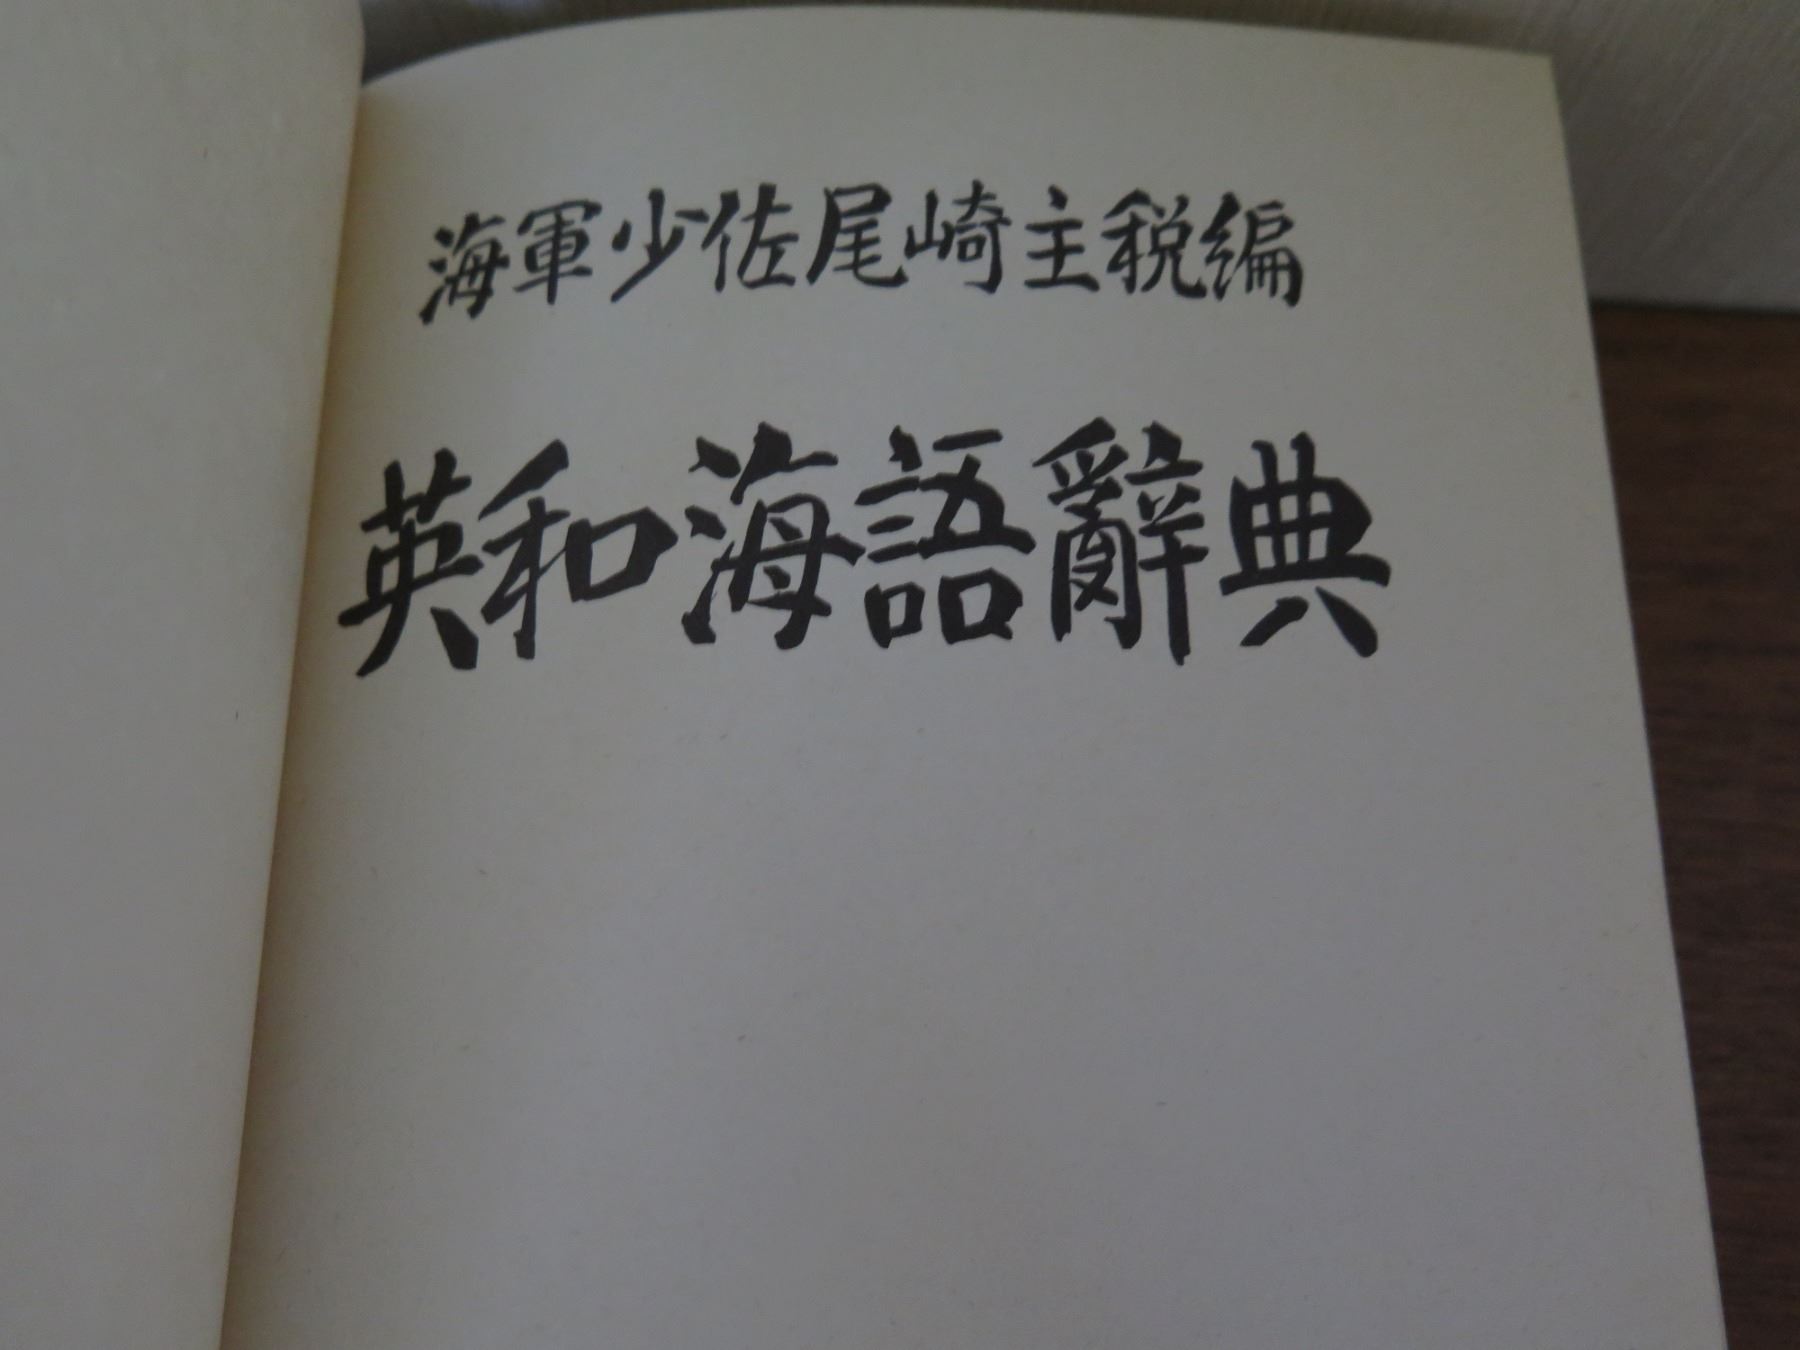 海軍少佐尾崎主税編
英和海語辭典